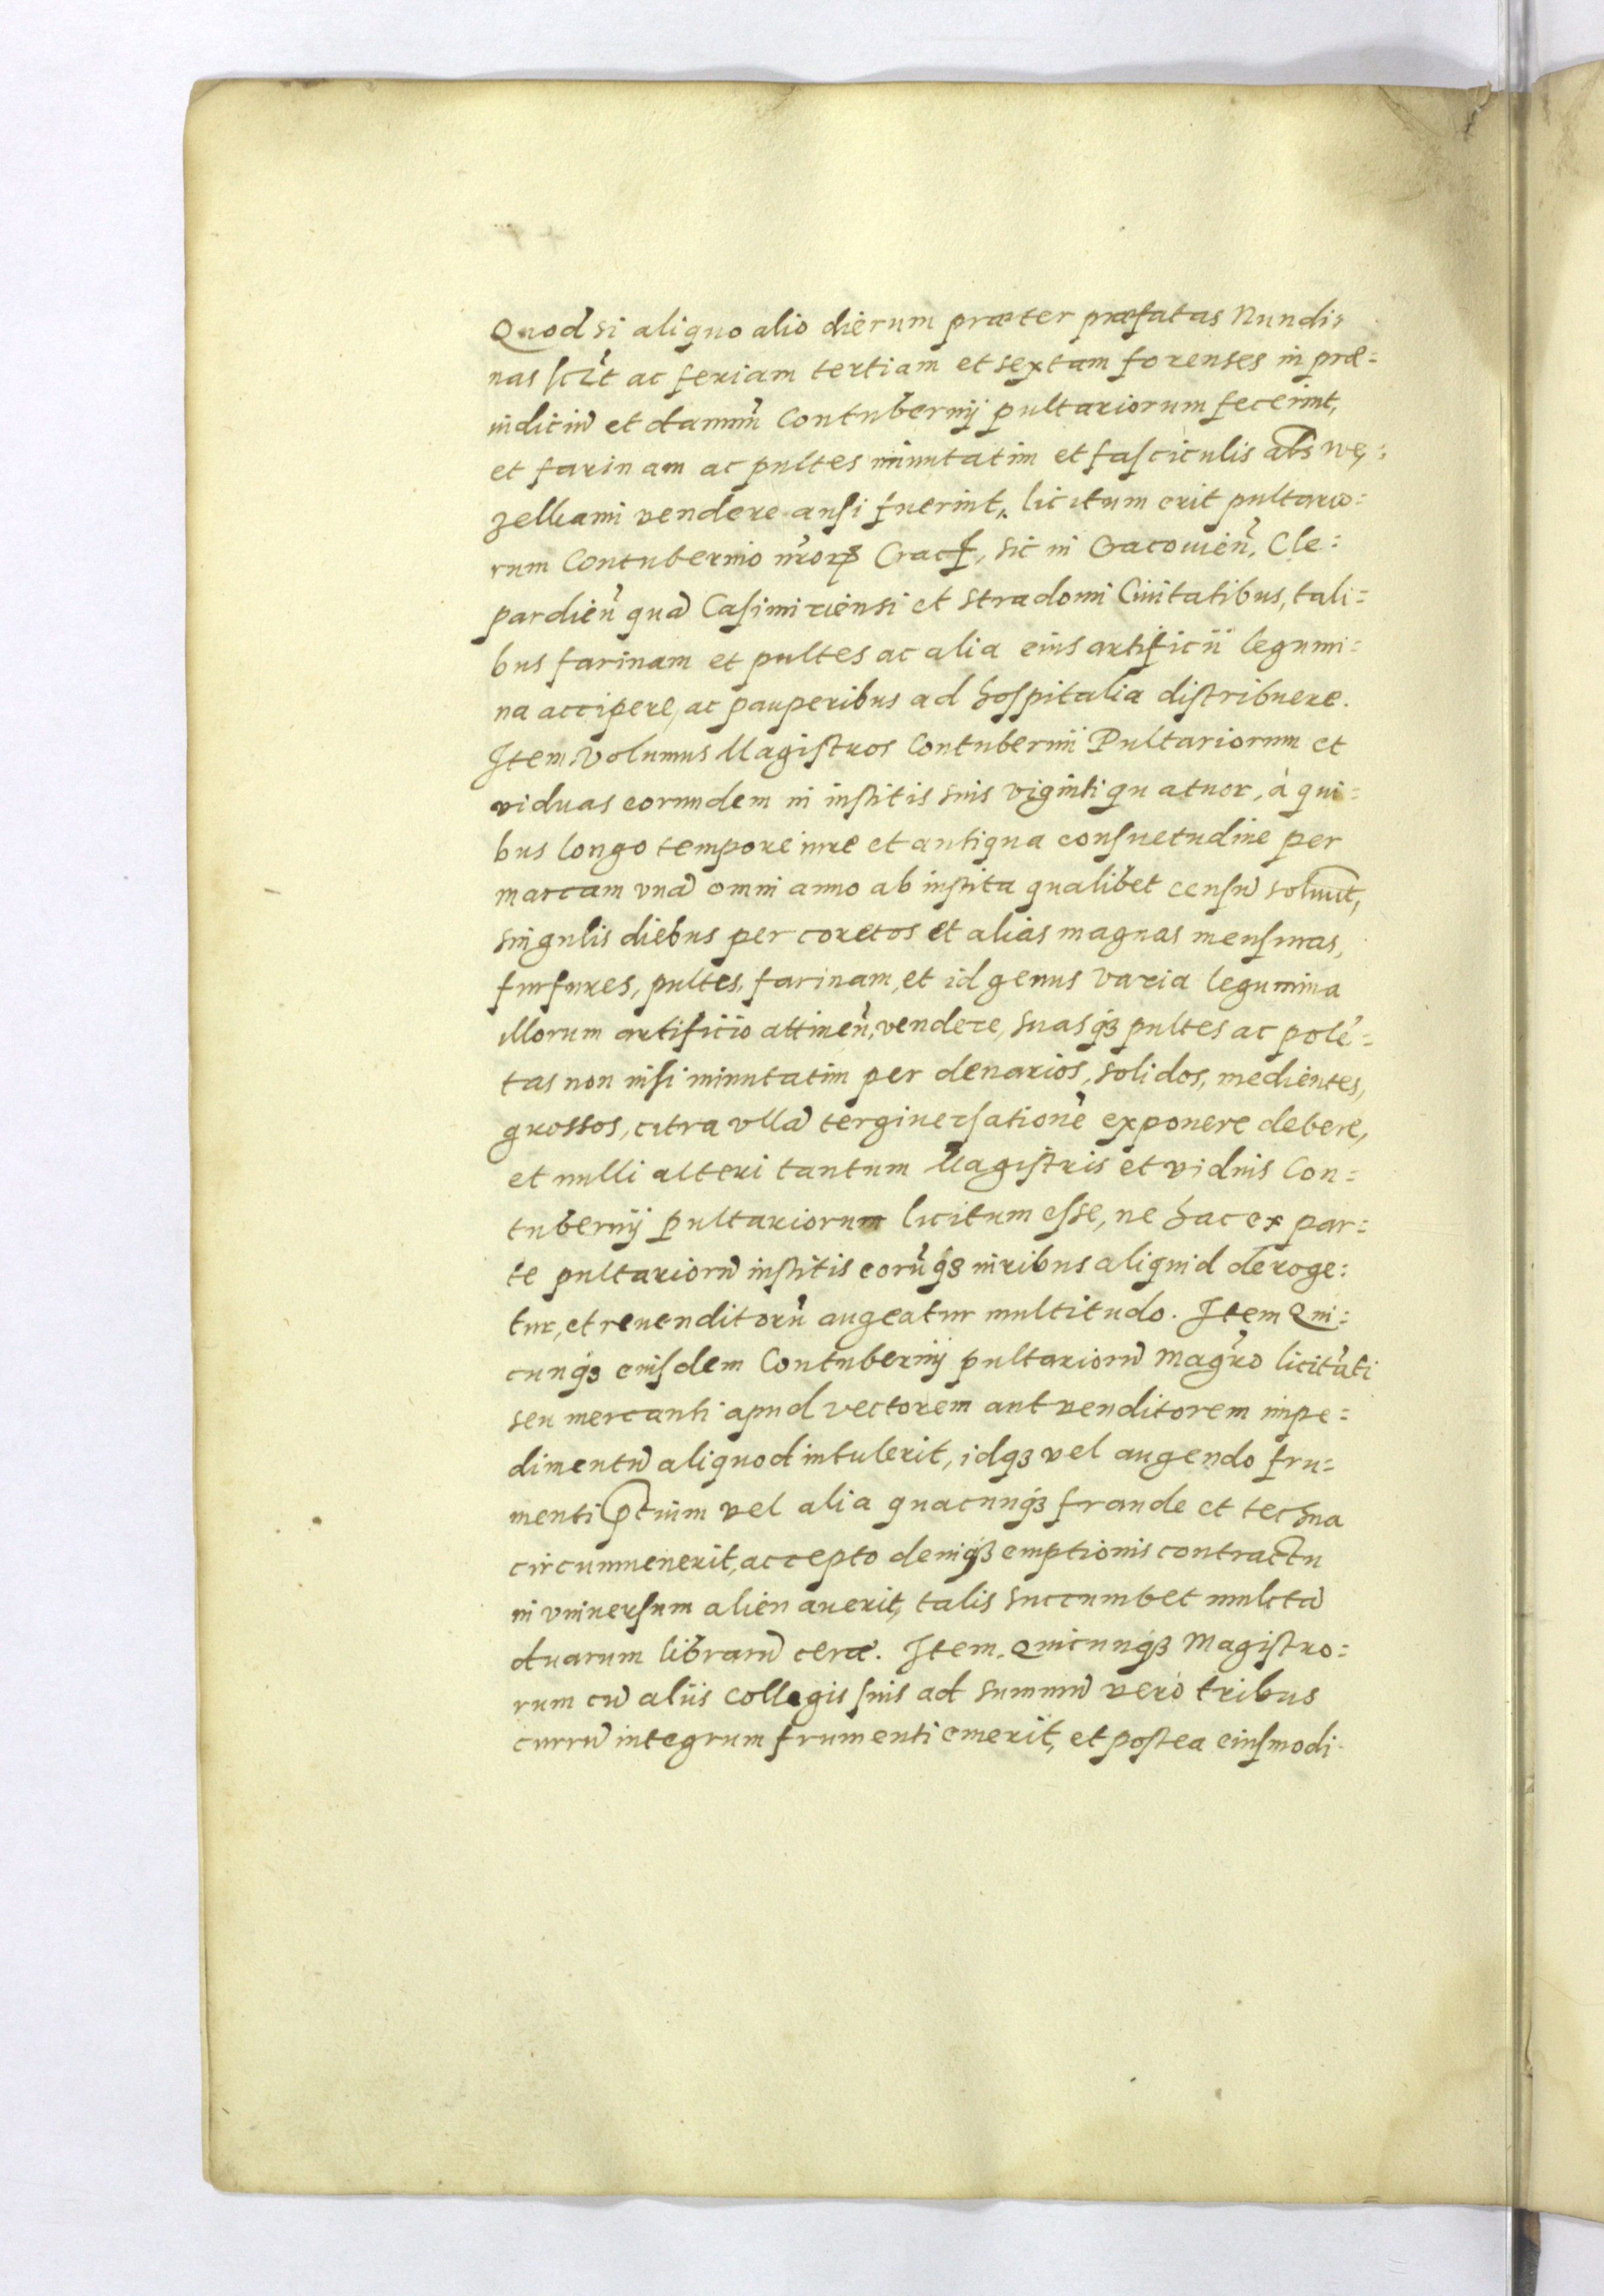 Quod si aliquo alio dierum præter præfatas Nundi=
nas scil̃t ac feriam tertiam et sextam forenses in præ=
iudiciũ et damnũ Contubernij pultariorum fecerint,
et farinam ac pultes minutatim et fasciculis als wę=
zelkami vendere ausi fuerint, licitum erit pultario=
rum Contubernio nr̃orꝝ Crac, sic in Cracouien̄, Cle=
pardien̄ quã Casimiriensi et Stradomi Ciuitatibus, tali=
bus farinam et pultes ac alia eius artificii legumi=
na accipere, ac pauperibus ad hospitalia distribuere.
Item Volumus Magistros Contubernii Pultariorum et
viduas eorundem in institis suis viginti quatuor, à qui=
bus longo tempore iure et antiqua consuetudine per
marcam vnã omni anno ab instita qualibet censũ soluũt,
singulis diebus per coretos et alias magnas mensuras,
furfures, pultes, farinam, et id genus varia legumina
illorum artificio attinen̄, vendere, suasqꝫ pultes ac polẽ=
tas non nisi minutatim per denarios, solidos, medientes,
grossos, citra vllã tergiuersationẽ exponere debere,
et nulli alteri tantum Magistris et viduis Con=
tubernij pultariorum licitum esse, ne hac ex par=
te pultariorũ institis eorũqꝫ iuribus aliquid deroge=
tur, et reuenditorũ augeatur multitudo. Item Qui=
cunqꝫ eiusdem Contubernij pultariorũ Magr̃o licitãti
seu mercanti apud vectorem aut venditorem impe=
dimentũ aliquod intulerit, idqꝫ vel augendo fru=
menti p̃tium vel alia quacunqꝫ fraude et techna
circumuenerit, accepto deniqꝫ emptionis contractu
in vniuersum alienauerit, talis succumbet mulctã
duarum librarũ ceræ. Item, Quicunqꝫ Magistro=
rum cũ aliis Collegis suis ad summũ vero tribus
currũ integrum frumenti emerit, et postea eiusmodi